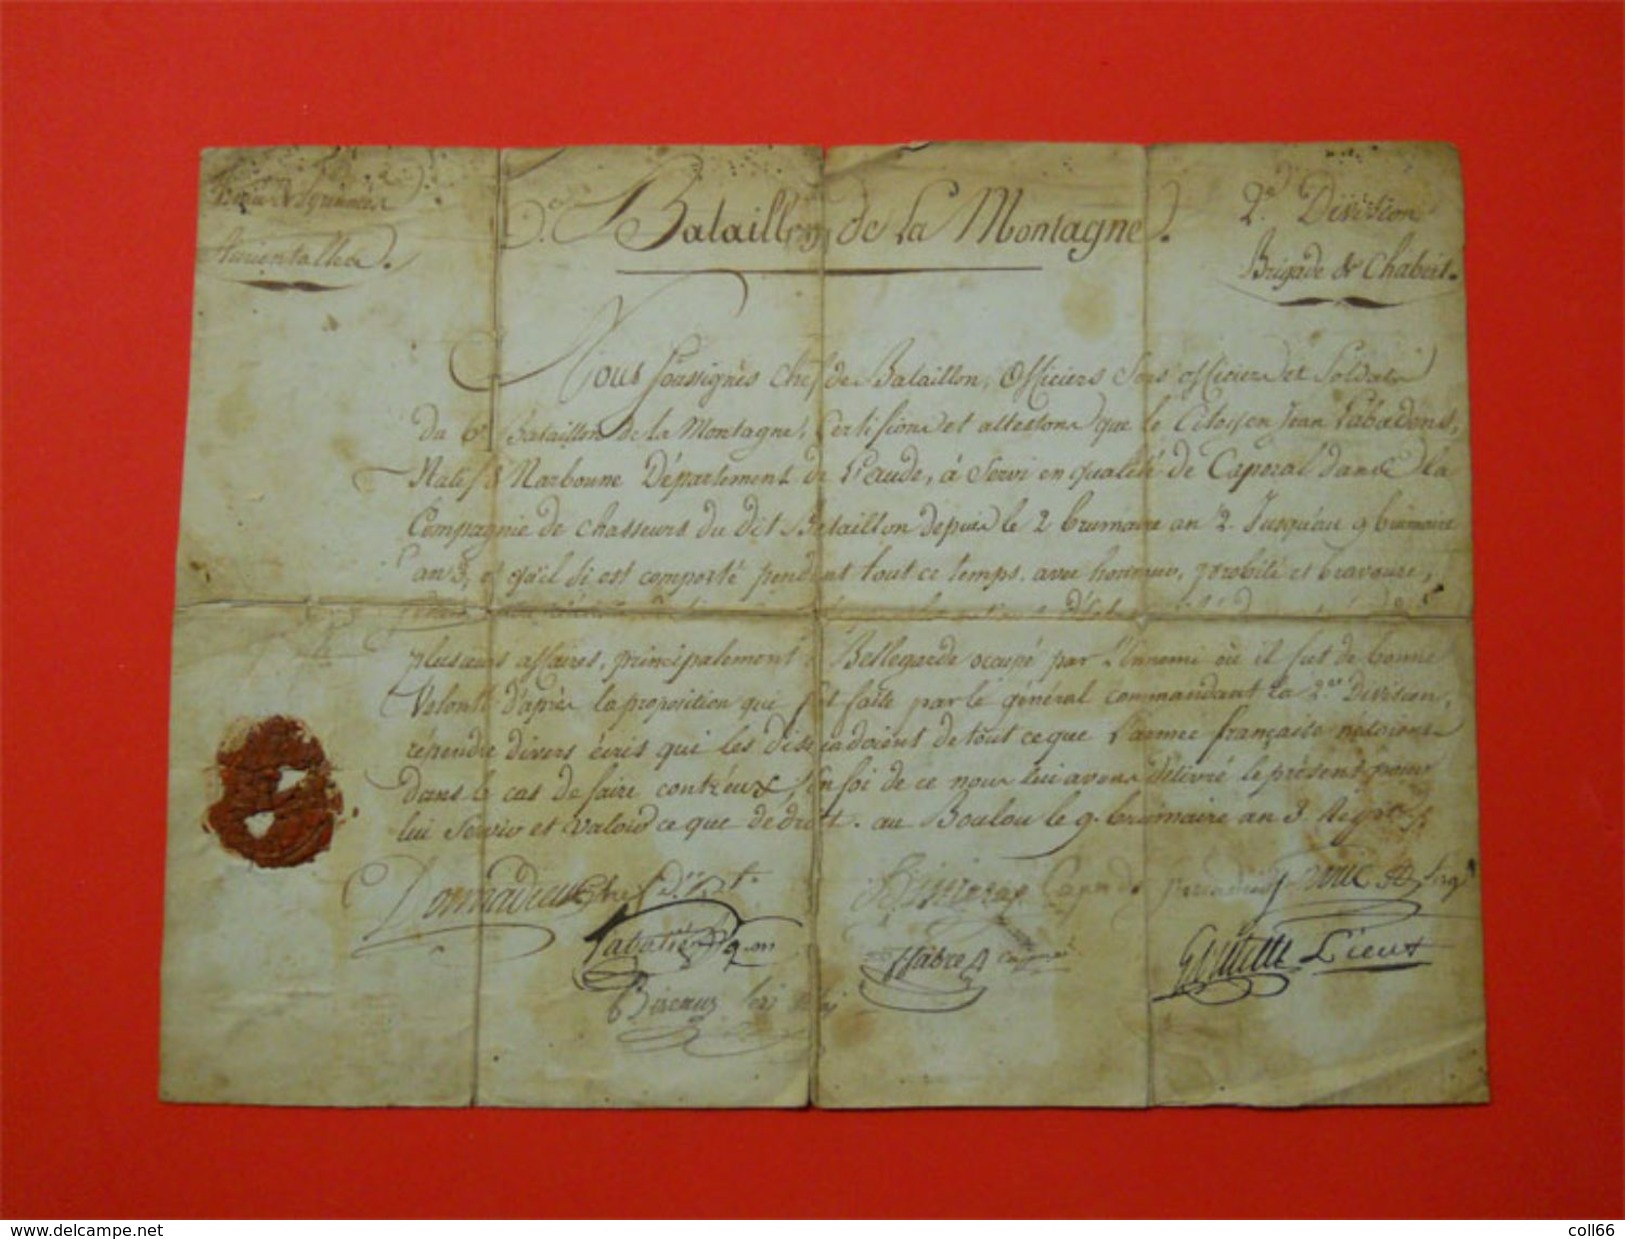 Pyrinnées
Aurientalles.
6e. Bataillon de La Montagne.
2e. Division
Brigade de Chabert.
Nous soussignés Chef de Bataillon, Officiers Sous officiers et Soldats
du 6e Bataillon de la Montagne, Certifions et attestons que le Citoyen Jean Labadens,
Natif de Narbonne Département de L'aude, à Servi en qualité de Caporal dans la
Compagnie de chasseurs du dit Bataillon depuis le 2 brumaire an 2. Jusqu'au 9 brumaire
an 3, et qu'il si est comporté pendant tout ce temps, avec honneur, probité et bravoure,
plusieurs affaires, principalement à Bellegarde occupé par l'Ennemi où il fut de bonne
Volonté d'après la proposition qui fut faite par le général commandant la 2e Division,
répendre divers écris qui les dissuadoient de tout ce que L'armée française
dans le cas de faire contr'eux, En foi de ce nous lui avons délivré le présent pour
lui Servir et valoir ce que de droit. au Boulou le 9. brumaire an 3.
Donnadieu
Sabatier
Fabre
Bizeaux
Lieut
coll66